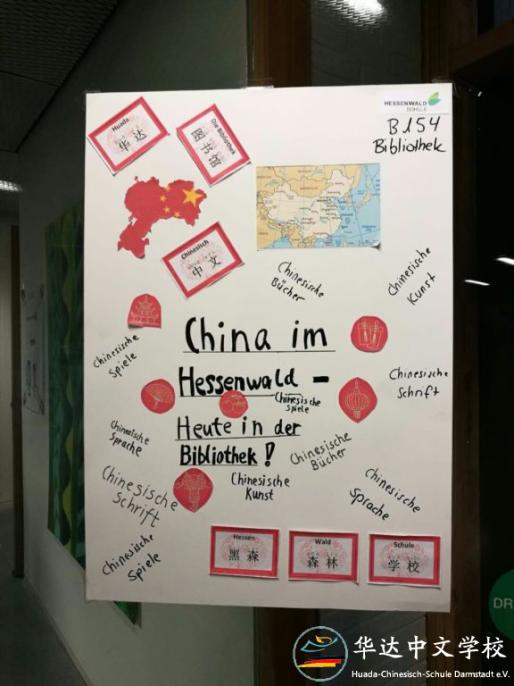 HESSENWALD
SCHULE
B154
Bibliothek
Huada
华达
Die Bibliothek
图书馆
Chinesisch
中文
Chinesische
Bücher
Chinesische
Kunst
Chinesische
Spiele
China im
Hessenwald -
Heute in der
Bibliothek!
Chinesische
Spiele
Chinesische
Schrift
Chinesische
Sprache
Chinesische
Bücher
Chinesische
Schrift
Chinesische
Kunst
Chinesische
Sprache
Chinesische
Spiele
Hessen
黑森
Wald
森林
Schule
学校
DR
华达中文学校
Huada-Chinesisch-Schule Darmstadt e.V.